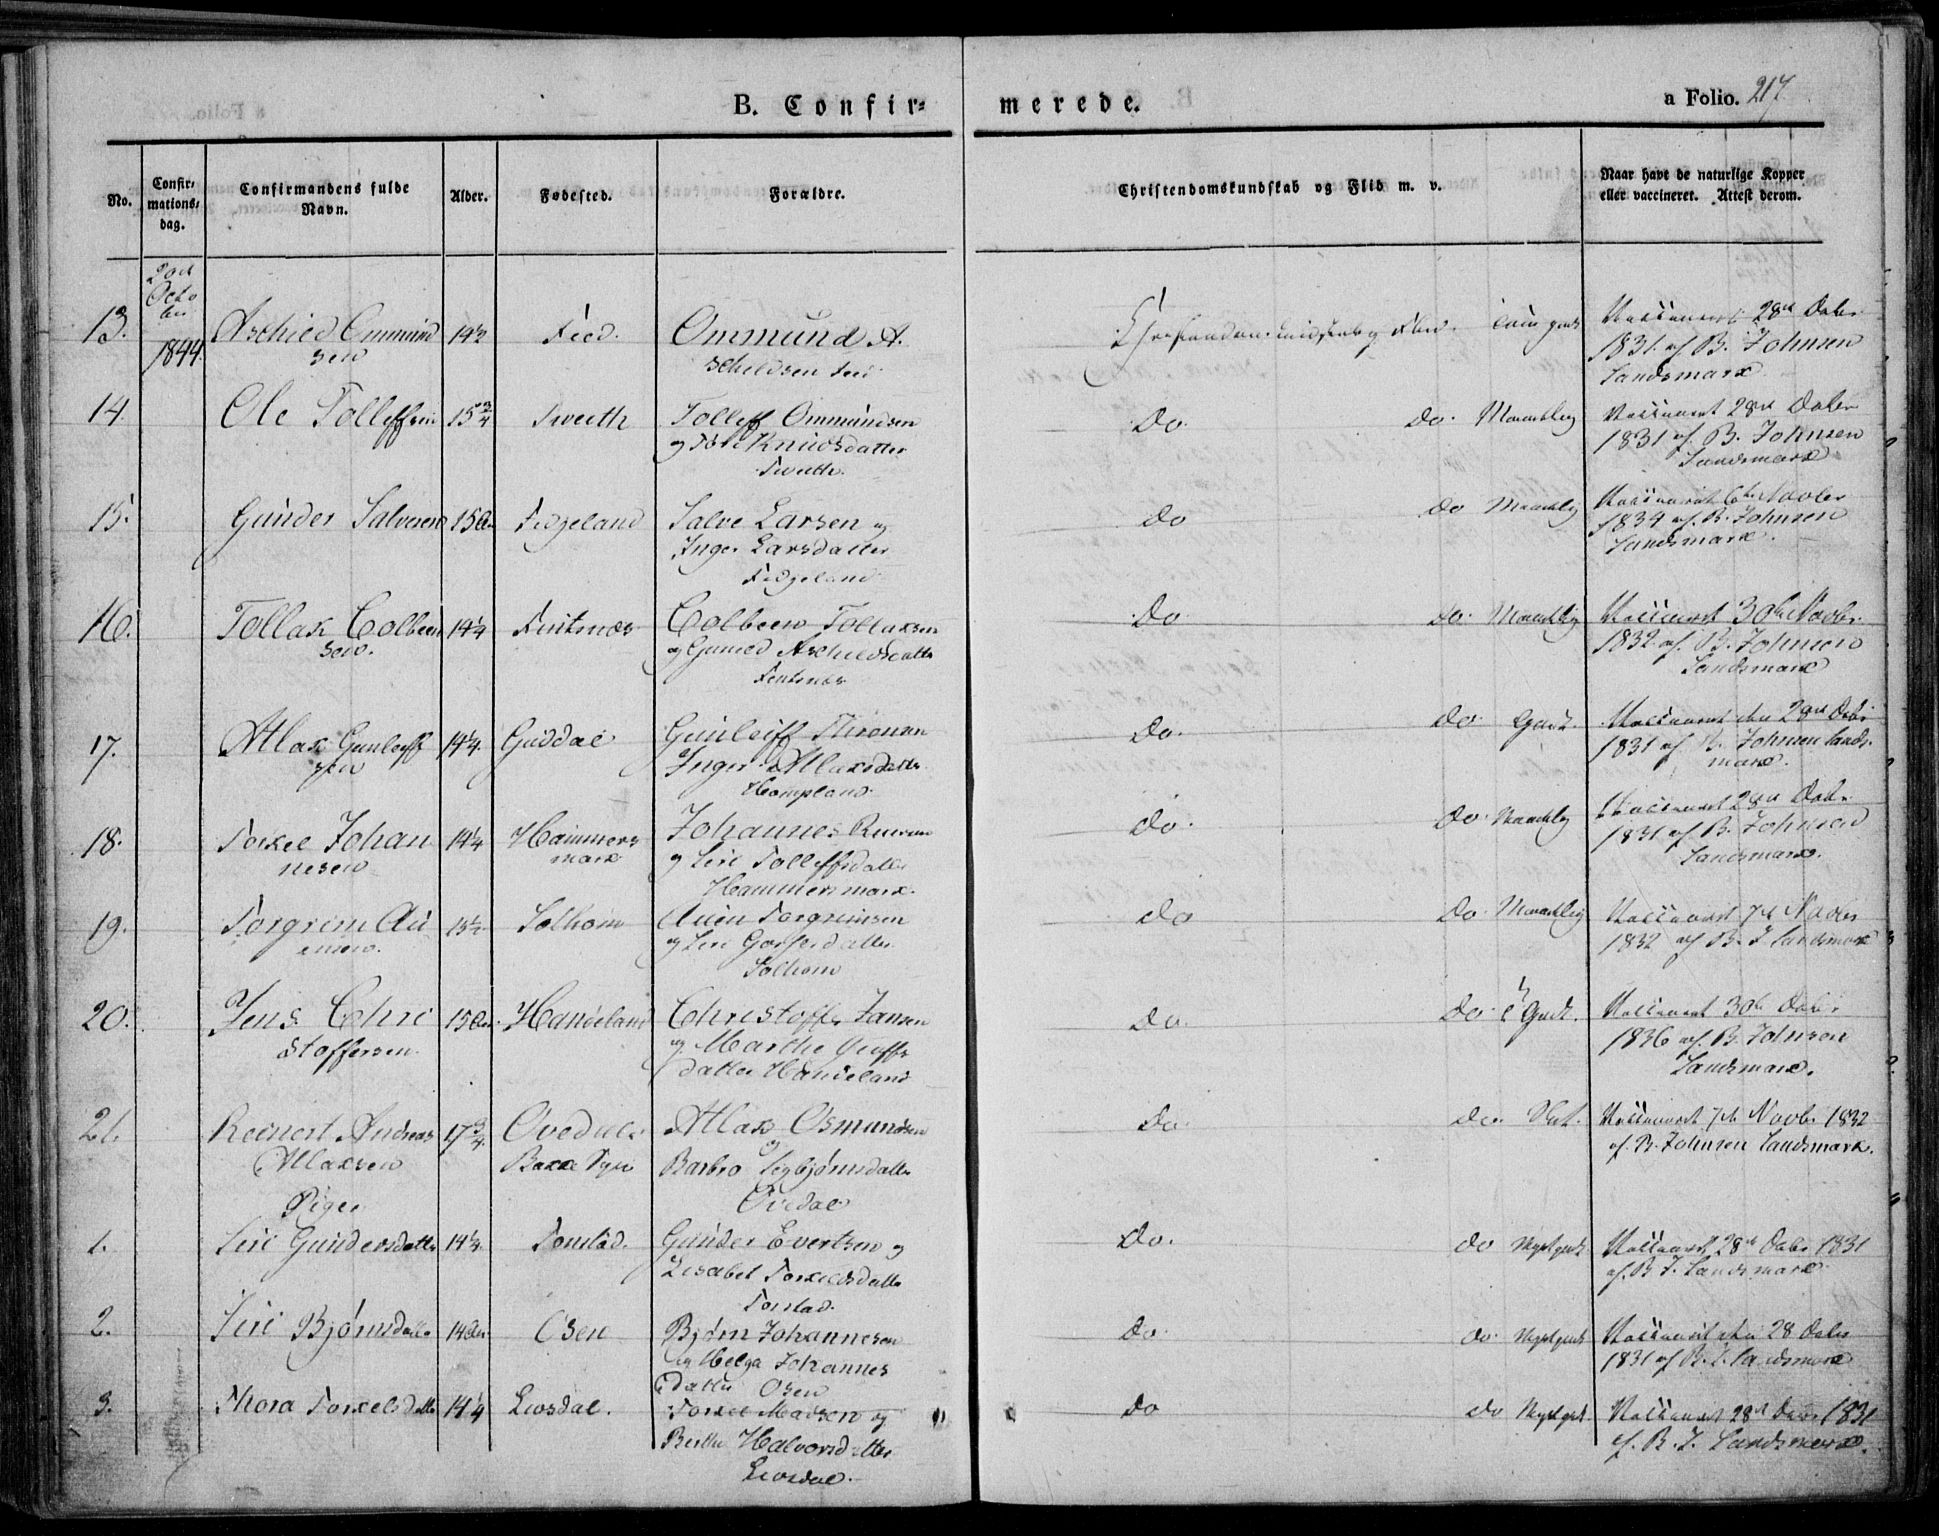 B. Confir=
merede.
a Folio. 217.
No.
Confir=
mations=
dag.
Confirmandens fulde
Navn.
Alder.
Fødested.
Forældre.
Christendomskundskab og Flid m. v.
Naar havt de naturlige Kopper
eller vaccineret. Attest derom.
13.
Octo
ber
1844.
Aschied Ommund
sen
14½
Omund A.
schieldsen
28de Octbr
1831 af B. Johnsen
Landsmark
14.
Ole Tolleffsen
15¾
Tveeth
Tolleff Ommundsen
og Knudsdatter
Tveeth.
Do
do. Maadelig
Vaccineret 28de Octbr
1831 af B. Johnsen
Landsmark
15.
Gunder Salvesen
Fidjeland
Salve Larsen og
Inger Larsdatter
Fidjeland
Do
do Maadelig
Vaccineret 6te Novbr
1834 af B. Johnsen
Landsmark.
16.
Tollak Colbeen
sen.
14¼
Colbeen Tollaksen
og Gunild Aschildsdatter
Do
do. Maadelig
Vaccineret 30te Novbr
1832 af B. Johnsen
Landsmark
17.
Atlak Gunleiff
sen
14¼
Guddal
Gunleiff
Inger Atlaksdatter
Hompland.
Do.
do. Godt.
Vaccineret den 28de Octbr
1831 af B. Johnsen Lands
mark.
18.
Torkel Johan
nesen
14¼
Hammers
mark
Johannes
og Siri Tolleffsdatter
Hammersmark.
Do.
do. Maadelig
Vaccineret 28de Octbr
1831 af B. Johnsen
Landsmark.
19.
Torgrim Au
ensen.
Solhom
Auen Torgrimsen
og Siri
Solhom
Do
do Maadelig
Vaccineret 7de Novbr
1832 af B. J. Landsmark
20.
Jens Chri
stoffersen.
Haudeland
Christoffer Jansen
og Marthe
datter Haudeland
Do.
do Godt.
Vaccineret 30te Octbr
1836 af B. Johnsen
Landsmark.
21.
Reinert Andreas
Atlaksen
17¾
Ovedal
Atlak Osmundsen
og
Barbro Sigbjørnsdatter
Ovedal
Do.
do. Slet.
Vaccineret 7de Novbr 1832
af B. Johnsen Landsmark.
Piger
1.
Siri Gundersdatter
14¼.
Tonstad.
Gunder Evertsen og
Lisabet Torkelsdatter
Tonstad.
Do.
do Megetgodt
Vaccineret 28de Octbr 1831
af B. J. Landsmark
2.
Siri Bjørnsdatter
Osen
Bjørn Johannesen
og Helga Johannes
datter Osen
Do.
do. Megetgodt
Vaccineret den 28 Octbr
1831 af B. J. Landsmark
3.
Thora Torkelsdatter
14¼
Liosdal.
Torkel Madsen og
Berthe Halvorsdatter
Liosdal.
Do
do Megetgodt.
Vaccineret 28de Octbr 1831
af B. J. Landsmark.